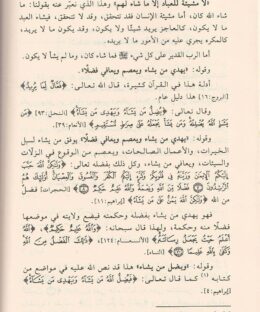 لا مشيئة للعباد إلا ما شاء لهم» وهذا الذي نعبّر عنه بقولنا: ما
شاء الله كان، أما مشيئة الإنسان فقد تتحقق، وقد لا تتحقق، فيشاء العبد
ما لا يكون، كالعاجز يريد شيئًا ولا يكون، وقد يكون ما لا يريد،
كالمكره يجري عليه من الأمور ما لا يريد.
أما الرب القدير على كل شيء فما شاء كان، وما لم يشأ لا يكون.
وقوله: «يهدي من يشاء ويعصم ويعافي فضلًا».
أدلة هذا في القرآن كثيرة، قال الله تعالى: ﴿فَعَّالٌ لِّمَا يُرِيدُ﴾
[البروج: ١٦] هذا دليل عام.
وقال تعالى: ﴿يُضِلُّ مَن يَشَاءُ وَيَهْدِي مَن يَشَاءُ﴾ [النحل: ٩٣] ﴿مَن
يَشَإِ اللَّهُ يُضْلِلْهُ وَمَن يَشَأْ يَجْعَلْهُ عَلَى صِرَاطٍ مُّسْتَقِيمٍ﴾ [الأنعام: ٣٩].
وقوله: «يهدي من يشاء ويعصم ويعافي فضلًا» يوفق من يشاء لسبل
الخيرات، والأعمال الصالحات، ويعصم من الوقوع في الزلات
والسيئات، ويعافي من يشاء، وكل ذلك بفضله تعالى: ﴿وَلَكِنَّ اللَّهَ حَبَّبَ
إِلَيْكُمُ الْإِيمَانَ وَزَيَّنَهُ فِي قُلُوبِكُمْ وَكَرَّهَ إِلَيْكُمُ الْكُفْرَ وَالْفُسُوقَ وَالْعِصْيَانَ أُولَئِكَ هُمُ
الرَّاشِدُونَ فَضْلًا مِّنَ اللَّهِ وَنِعْمَةً وَاللَّهُ عَلِيمٌ حَكِيمٌ﴾ [الحجرات]
﴿وَلَكِنَّ اللَّهَ يَمُنُّ عَلَى مَن يَشَاءُ مِنْ عِبَادِهِ﴾ [إبراهيم: ١١].
فهو يهدي من يشاء بفضله وحكمته فيضع هدايته في موضعها
فضلًا منه وحكمة، ولهذا قال سبحانه: ﴿وَاللَّهُ عَلِيمٌ حَكِيمٌ﴾، ﴿اللَّهُ
أَعْلَمُ حَيْثُ يَجْعَلُ رِسَالَتَهُ﴾ [الأنعام: ١٢٤]، ﴿ذَلِكَ الْفَضْلُ مِنَ اللَّهِ
وقوله: «ويضل من يشاء» هذا قد نص الله عليه في مواضع من
كتابه (١) كما قال تعالى: ﴿فَيُضِلُّ اللَّهُ مَن يَشَاءُ وَيَهْدِي مَن يَشَاءُ﴾
[إبراهيم: ٤].